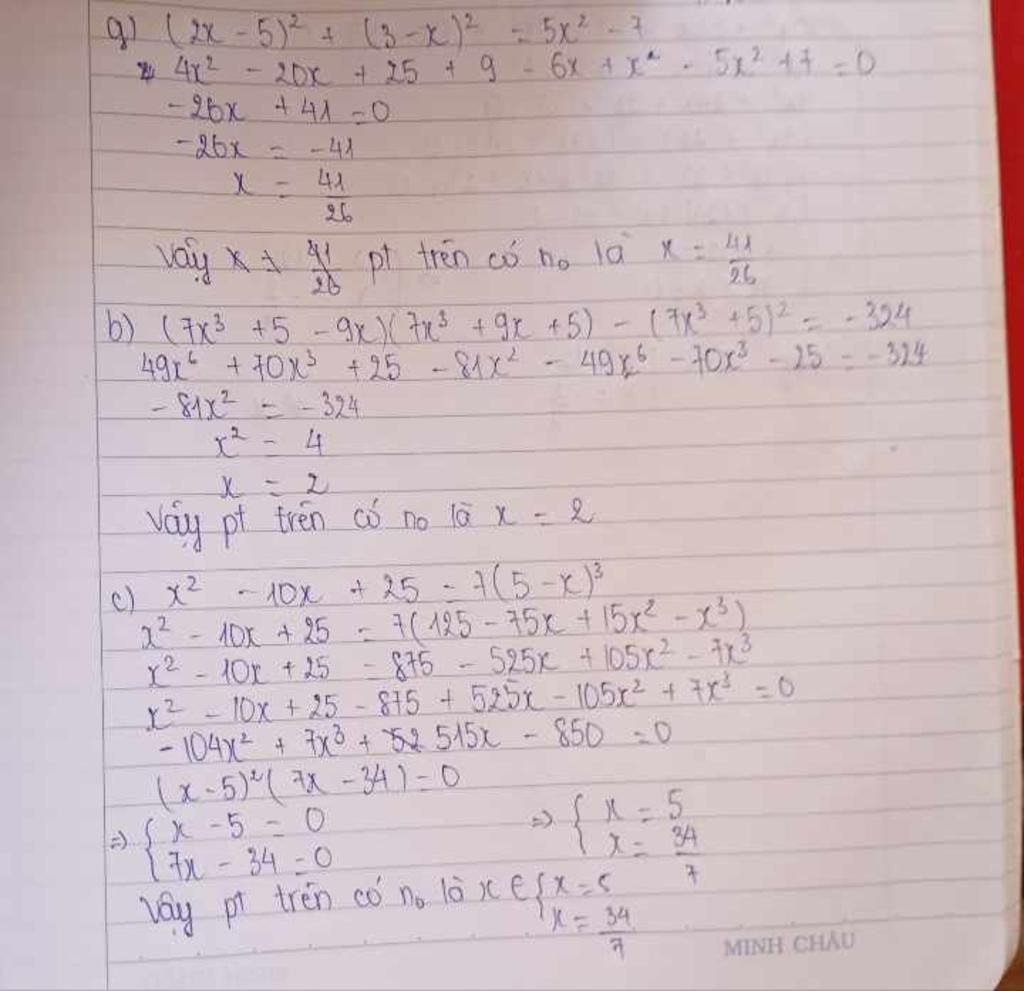 a) (2x - 5)² + (3 - x)² = 5x² - 7
4x² - 20x + 25 + 9 - 6x + x² - 5x² + 7 = 0
-26x + 41 = 0
-26x = -41
x = 41/26
Vậy x = 41/26 pt trên có no là x = 41/26
b) (7x³ + 5 - 9x)(7x³ + 9x + 5) - (7x³ + 5)² = -324
49x⁶ + 70x³ + 25 - 81x² - 49x⁶ - 70x³ - 25 = -324
-81x² = -324
x² = 4
x = 2
Vậy pt trên có no là x = 2
c) x² - 10x + 25 = 7(5 - x)³
x² - 10x + 25 = 7(125 - 75x + 15x² - x³)
x² - 10x + 25 = 875 - 525x + 105x² - 7x³
x² - 10x + 25 - 875 + 525x - 105x² + 7x³ = 0
-104x² + 7x³ + 515x - 850 = 0
(x - 5)²(7x - 34) = 0
=> { x - 5 = 0 => { x = 5
7x - 34 = 0 x = 34/7
Vậy pt trên có no là x ∈ { x = 5
x = 34/7
MINH CHÂU